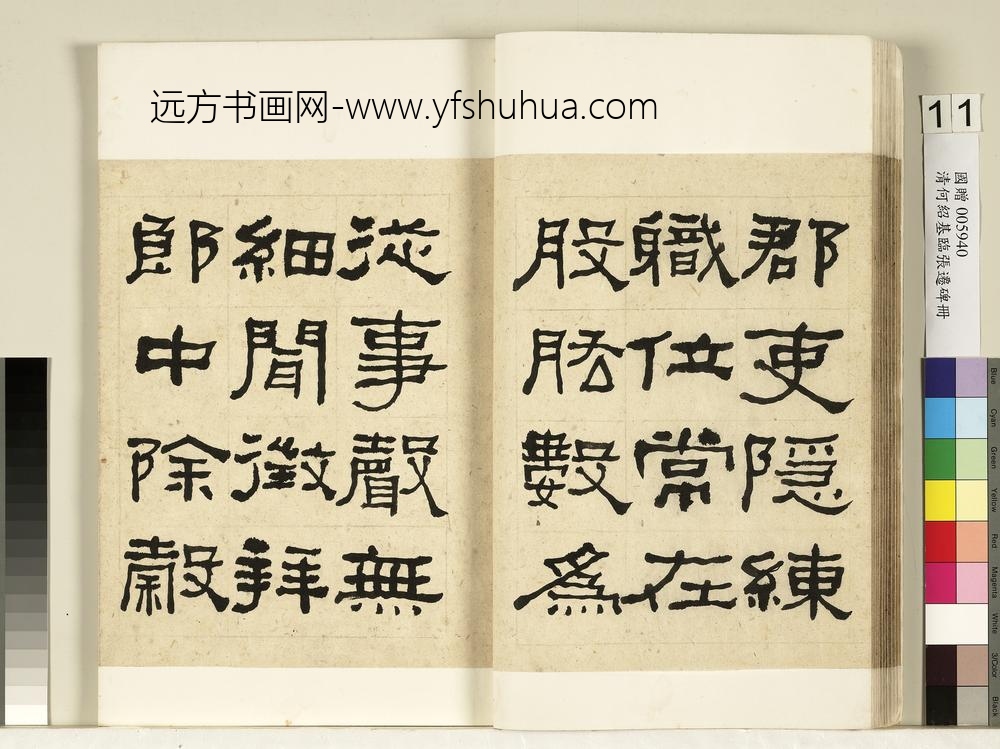 远方书画网-www.yfshuhua.com
郡吏隱練
職位常在
股肱數為
從事聲無
細聞徵拜
郎中除穀
11
國贈 005940
清何紹基臨張遷碑冊
Blue
Cyan
Green
Yellow
Red
Magenta
White
3/Color
Black